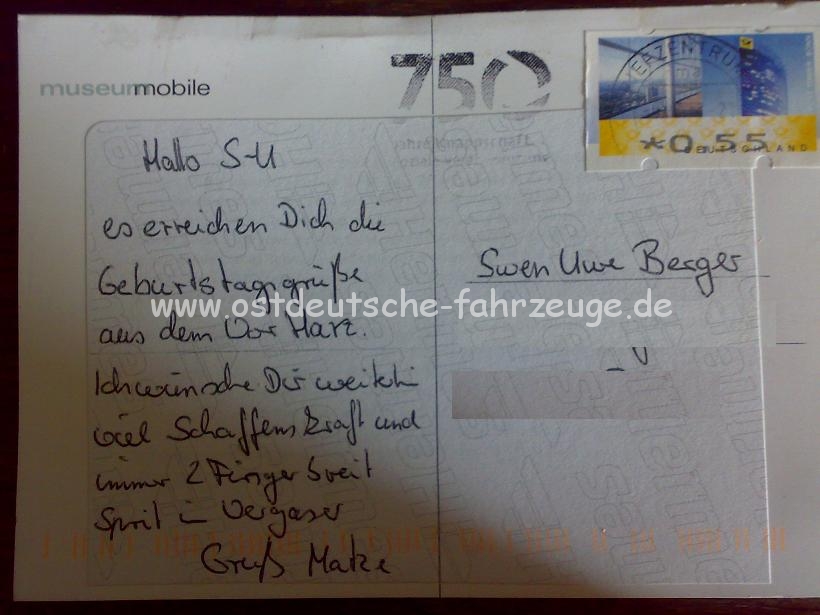 museummobile
750
ERZENTRU
*0.55
DEUTSCHLAND
Hallo S-U
es erreichen Dich die
Geburtstagsgrüße
aus dem Vor Harz.
Ich wünsche Dir weiterhin
viel Schaffenskraft und
immer 2 Finger breit
Sprit in Vergaser
Gruß Matze
Swen Uwe Berger
www.ostdeutsche-fahrzeuge.de